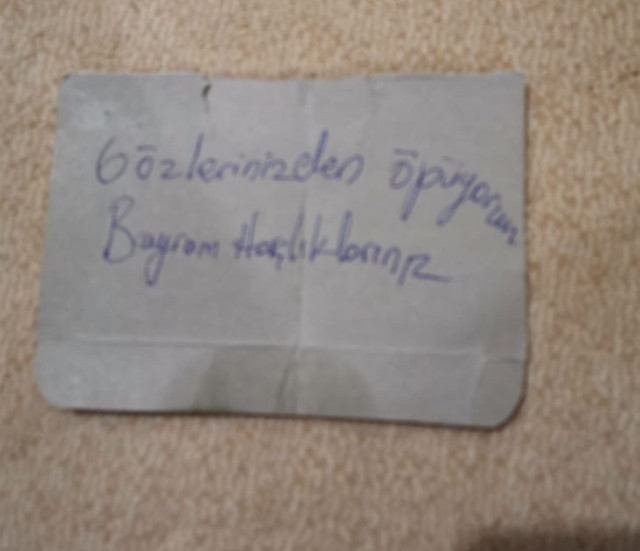 Gözlerinizden öpüyorum
Bayram Harçlıklarınız